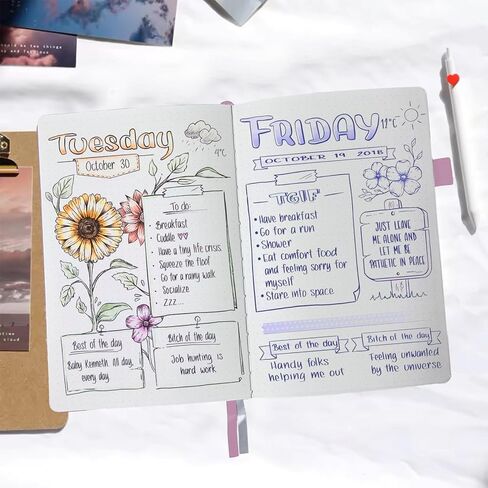 Tuesday
October 30
4°C
To do:
Breakfast
Cuddle
Have a tiny life crisis
Squeeze the floof
Go for a rainy walk
Socialize
Zzz...
Best of the day
Baby Kenneth. All day,
every day.
Bitch of the day
Job hunting is
hard work
FRIDAY
11°C
OCTOBER 19 2018
TGIF
Have breakfast
Go for a run
Shower
Eat comfort food
and feeling sorry for
myself
Stare into space
JUST LEAVE
ME ALONE AND
LET ME BE
PATHETIC IN PEACE
Best of the day
Handy folks
helping me out
Bitch of the day
Feeling unwanted
by the universe